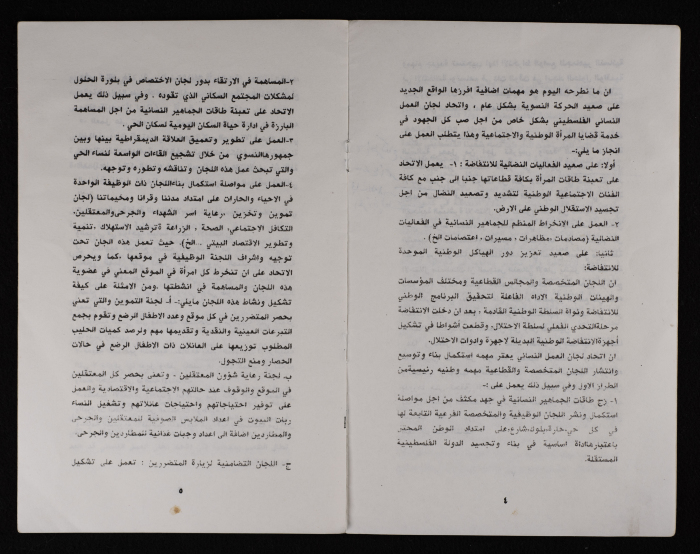 ان ما نطرحه اليوم هو مهمات اضافية افرزها الواقع الجديد
على صعيد الحركة النسوية بشكل عام ، واتحاد لجان العمل
النسائي الفلسطيني بشكل خاص من اجل صب كل الجهود في
خدمة قضايا المرأة الوطنية والاجتماعية وهذا يتطلب العمل على
انجاز ما يلي:-
أولا: على صعيد الفعاليات النضالية للانتفاضة : ١- يعمل الاتحاد
على تعبئة طاقات المرأة بكافة قطاعاتها جنبا الى جنب مع كافة
الفئات الاجتماعية الوطنية لتشديد وتصعيد النضال من اجل
تجسيد الاستقلال الوطني على الارض.
٢- العمل على الانخراط المنظم للجماهير النسائية في الفعاليات
النضالية (مصادمات ،مظاهرات ، مسيرات ، اعتصامات الخ) .
ثانيا: على صعيد تعزيز دور الهياكل الوطنية الموحدة
للانتفاضة:
ان اللجان المتخصصة والمجالس القطاعية ومختلف المؤسسات
والهيئات الوطنية الاداه الفاعلة لتحقيق البرنامج الوطني
للانتفاضة ونواة السلطة الوطنية القادمة ، بعد ان دخلت الانتفاضة
مرحلةالتحدي الفعلي لسلطة الاحتلال، وقطعت أشواطا في تشكيل
أجهزةالانتفاضة الوطنية البديلة لاجهزة وادوات الاحتلال.
ان اتحاد لجان العمل النسائي يعتبر مهمه استكمال بناء وتوسيع
وانتشار اللجان المتخصصة والقطاعية مهمه وطنيه رئيسيةمن
الطراز الاول وفي سبيل ذلك يعمل على :-
١- زج طاقات الجماهير النسائية في جهد مكثف من اجل مواصلة
استكمال ونشر اللجان الوظيفية والمتخصصة الفرعية التابعة لها
في كل حي،حارة،بلوك،شارع،على امتداد الوطن المحتل
باعتبارهاأداة اساسية في بناء وتجسيد الدولة الفلسطينية
المستقلة.
٤
٢-المساهمة في الارتقاء بدور لجان الاختصاص في بلورة الحلول
لمشكلات المجتمع السكاني الذي تقوده . وفي سبيل ذلك يعمل
الاتحاد على تعبئة طاقات الجماهير النسائية من اجل المساهمة
البارزة في ادارة حياة السكان اليومية لسكان الحي .
٣-العمل على تطوير وتعميق العلاقة الديمقراطية بينها وبين
جمهورهاالنسوي من خلال تشجيع اللقاءات الواسعة لنساء الحي
والتي تبحث عمل هذه اللجان وتناقشه وتطوره وتوجهه.
٤-العمل على مواصلة استكمال بناءاللجان ذات الوظيفة الواحدة
في الاحياء والحارات على امتداد مدننا وقرانا ومخيماتنا (لجان
تموين وتخزين ،رعاية اسر الشهداء والجرحىوالمعتقلين،
التكافل الاجتماعي، الصحة ، الزراعة ،ترشيد الاستهلاك ،تنمية
وتطوير الاقتصاد البيتي ...الخ). حيث تعمل هذه اللجان تحت
توجيه واشراف اللجنة الوظيفية في موقعها ،كما ويحرص
الاتحاد على ان تنخرط كل امرأة في الموقع المعني في عضوية
هذه اللجان والمساهمة في انشطتها ،ومن الامثلة على كيفة
تشكيل ونشاط هذه اللجان مايلي:- أ- لجنة التموين والتي تعني
بحصر المتضررين في كل موقع وعدد الاطفال الرضع وتقوم بجمع
التبرعات العينية والنقدية وتقديمها مهم ورصد كميات الحليب
المطلوب توزيعها على العائلات ذات الاطفال الرضع في حالات
الحصار ومنع التجول.
ب- لجنة رعاية شؤون المعتقلين . وتعنى بحصر كل المعتقلين
في الموقع والوقوف عند حالتهم الاجتماعية والاقتصادية والعمل
على توفير احتياجاتهم واحتياجات عائلاتهم وتشغيل النساء
ربات البيوت في اعداد الملابس الصوفية للمعتقلين والجرحى
والمطاردين اضافة الى اعداد وجبات غذائية للمطاردين والجرحى.
ج- اللجان التضامنية لزيارة المتضررين : تعمل على تشكيل
٥